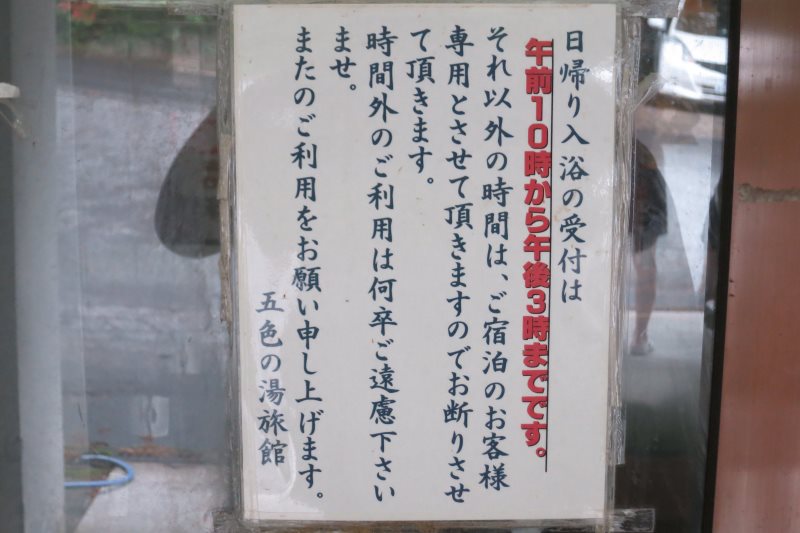 日帰り入浴の受付は
午前10時から午後3時までです。
それ以外の時間は、ご宿泊のお客様
専用とさせて頂きますのでお断りさせ
て頂きます。
時間外のご利用は何卒ご遠慮下さい
ませ。
またのご利用をお願い申し上げます。
五色の湯旅館